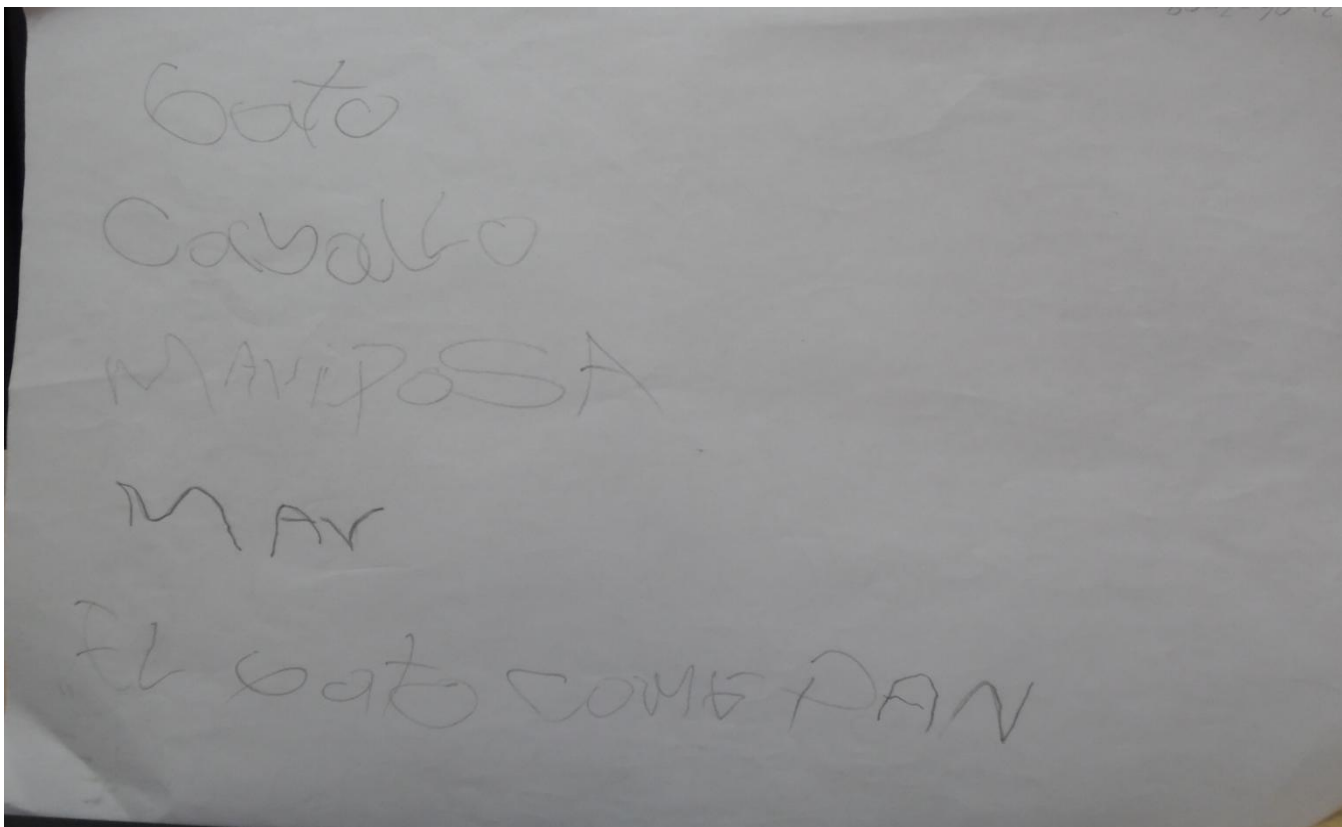 Gato
Caballo
MARiPOSA
MAr
EL gato COME PAN